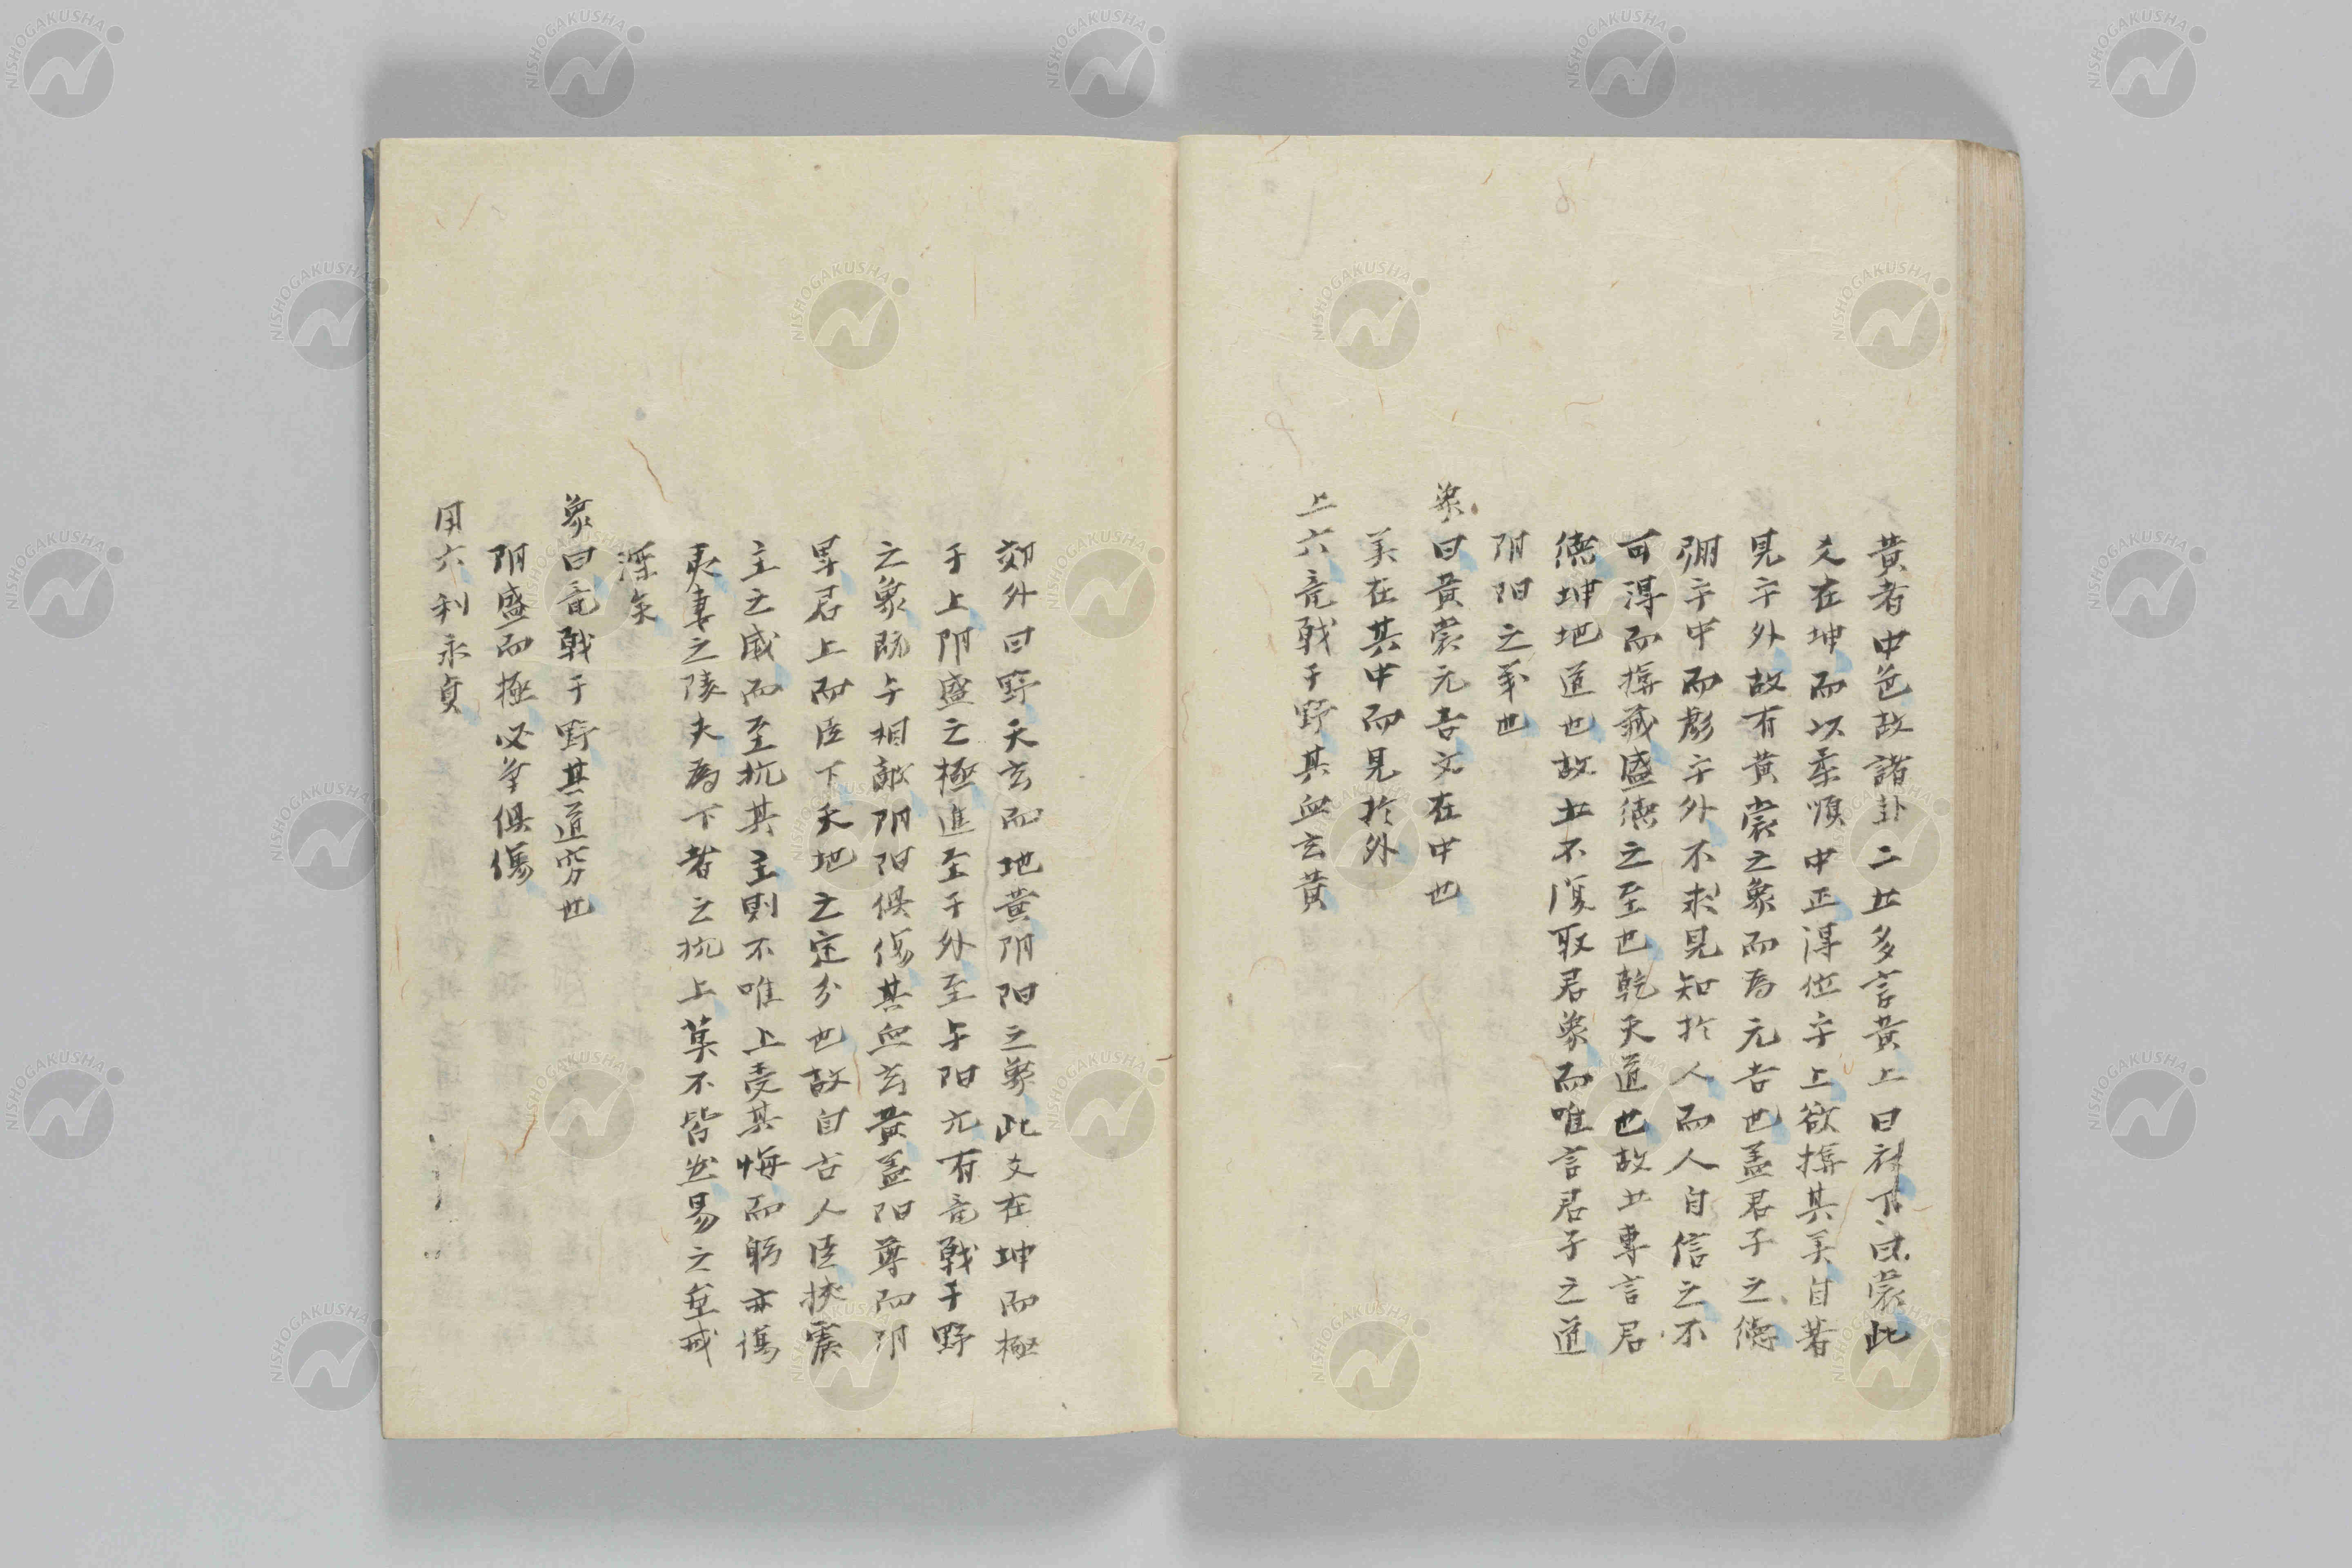 黄者中色故諸卦二五多言黄上曰衣下曰裳此
爻在坤而以柔順中正得位乎上欲揜其美自著
見乎外故有黄裳之象而為元吉也蓋君子之德
弸乎中而彪乎外不求見知於人而人自信之不
可得而揜蔽盛德之至也乾天道也故五專言君
德坤地道也故五不復取君象而唯言君子之道
阴阳之義也
象曰黄裳元吉文在中也
美在其中而見於外
上六竜戦于野其血玄黄
郊外曰野天玄而地黄阴阳之象此爻在坤而極
于上阴盛之極進至于外至与阳亢有竜戦于野
之象既与相敵阴阳俱傷其血玄黄蓋阳尊而阴
卑君上而臣下天地之定分也故自古人臣挾震
主之威而至抗其主則不唯上受其悔而躬亦傷
夷妻之陵夫為下者之抗上莫不皆然易之垂戒
深矣
象曰竜戦于野其道窮也
阴盛而極必争俱傷
用六利永貞
NISHOGAKUSHA